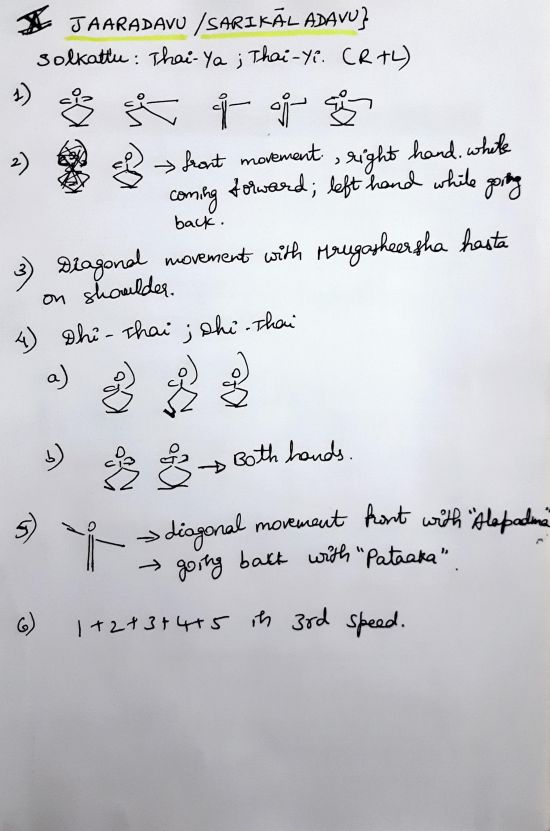 JAARADAVU / SARIKĀL ADAVU}
Solkattu : Thai-Ya ; Thai-Yi. (R+L)
1)
2) → front movement , right hand. while
coming forward ; left hand while going
back.
3) Diagonal movement with Mrugasheersha hasta
on shoulder.
4) Dhi - Thai ; Dhi - Thai
a)
b) → Both hands.
5) → diagonal movement front with "Alapadma"
→ going back with "Pataaka".
6) 1+2+3+4+5 in 3rd speed.